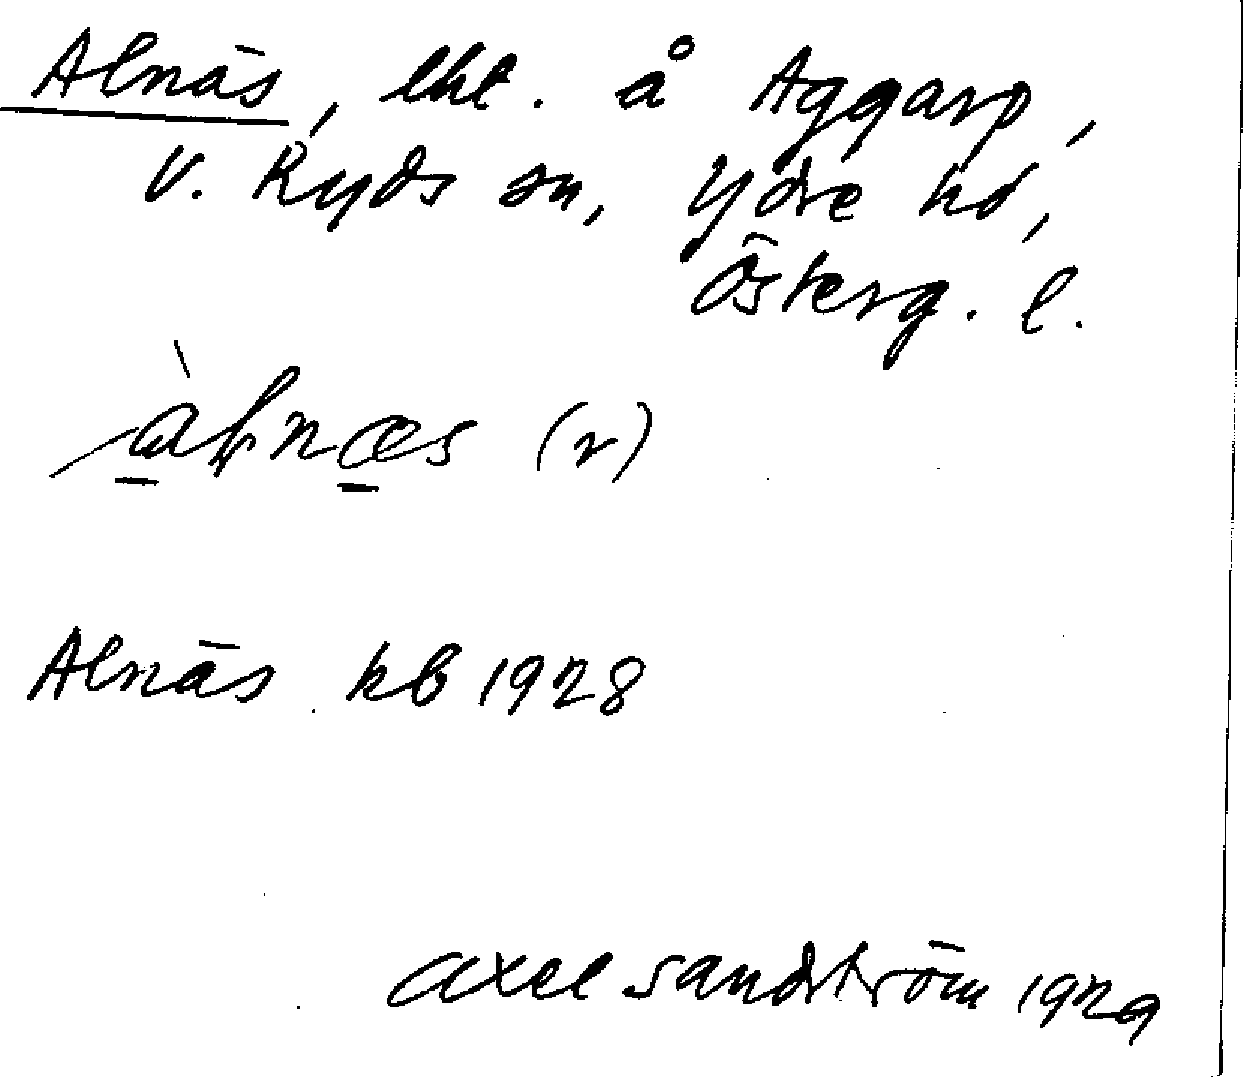 Alnäs, lht. å Aggarp,
V. Ryds sn, Ydre hd,
Österg. l.
àlnæs (r)
Alnäs kb 1928
Axel Sandström 1929